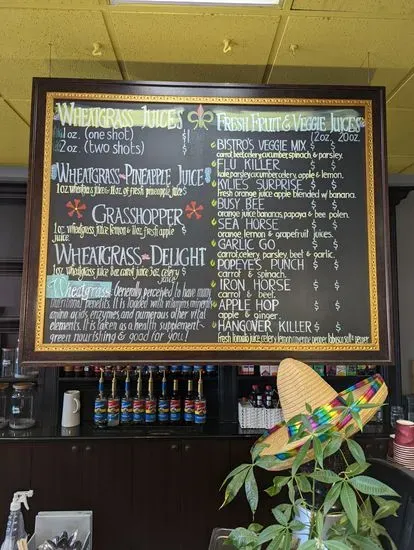 Wheatgrass Juices
1oz. (one shot) $
2oz. (two shots) $
Wheatgrass Pineapple Juice
1 oz wheatgrass juice & 11oz. of fresh pineapple juice $
Grasshopper
1 oz. wheatgrass juice, lemon & 11oz. fresh apple $
juice.
Wheatgrass Delight
1oz. wheatgrass juice 8oz. carrot juice 3oz. celery $
juice
Wheatgrass: Generally perceived to have many
nutritional benefits. It is loaded with vitamins, minerals,
amino acids, enzymes, and numerous other vital
elements. It is taken as a health supplement.
green nourishing & good for you!
Fresh Fruit & Veggie Juices
12oz. 20oz.
Bistro's Veggie Mix $ $
carrot, beet, celery, cucumber, spinach & parsley.
Flu Killer $ $
kale, parsley, cucumber, celery, apple & lemon.
Kylies Surprise $ $
fresh orange juice apple blended w/ banana.
Busy Bee $ $
orange juice bananas, papaya & bee polen.
Sea Horse $ $
orange, lemon & grapefruit juices.
Garlic Go $ $
carrot, celery, parsley, beet & garlic.
Popeyes Punch $ $
carrot & spinach.
Iron Horse $ $
carrot & beet.
Apple Hop $ $
apple & ginger.
Hangover Killer $ $
fresh tomato juice, celery, lemon, cayenne pepper, tabasco, salt & pepper